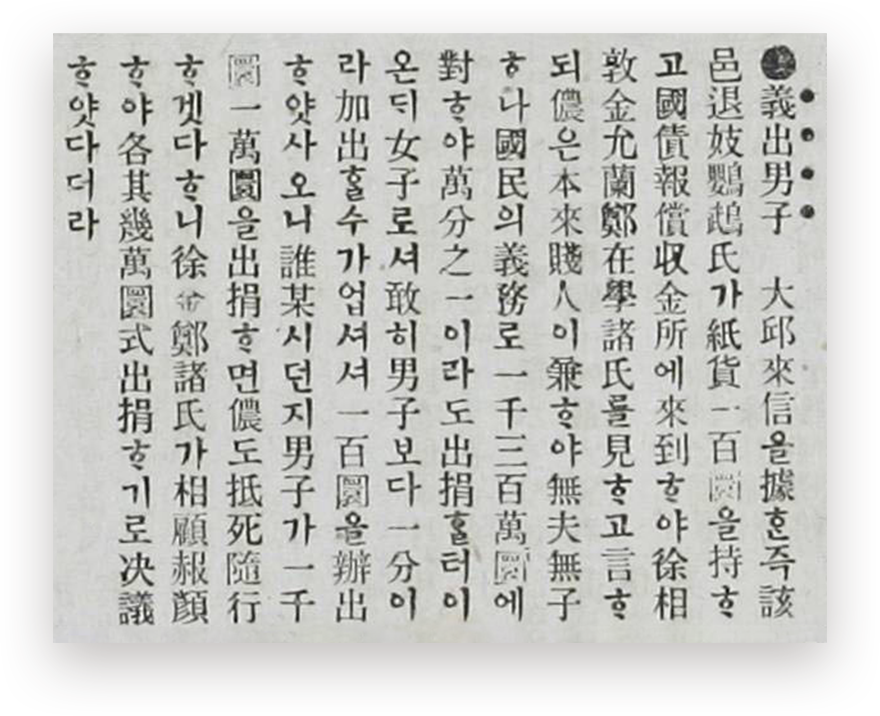 ●義出男子　大邱來信을據ᄒᆞᆫ즉該
邑退妓鸚鵡氏가紙貨一百圜을持ᄒᆞ
고國債報償収金所에來到ᄒᆞ야徐相
敦金允蘭鄭在學諸氏를見ᄒᆞ고言ᄒᆞ
되儂은本來賤人이兼ᄒᆞ야無夫無子
ᄒᆞ나國民의義務로一千三百萬圜에
對ᄒᆞ야萬分之一이라도出捐ᄒᆞᆯ터이
온ᄃᆡ女子로셔敢히男子보다一分이
라加出ᄒᆞᆯ수가업셔셔一百圜을辦出
ᄒᆞ얏사오니誰某시던지男子가一千
圜一萬圜을出捐ᄒᆞ면儂도抵死隨行
ᄒᆞ겟다ᄒᆞ니徐金鄭諸氏가相顧赧顔
ᄒᆞ야各其幾萬圜式出捐ᄒᆞ기로决議
ᄒᆞ얏다더라